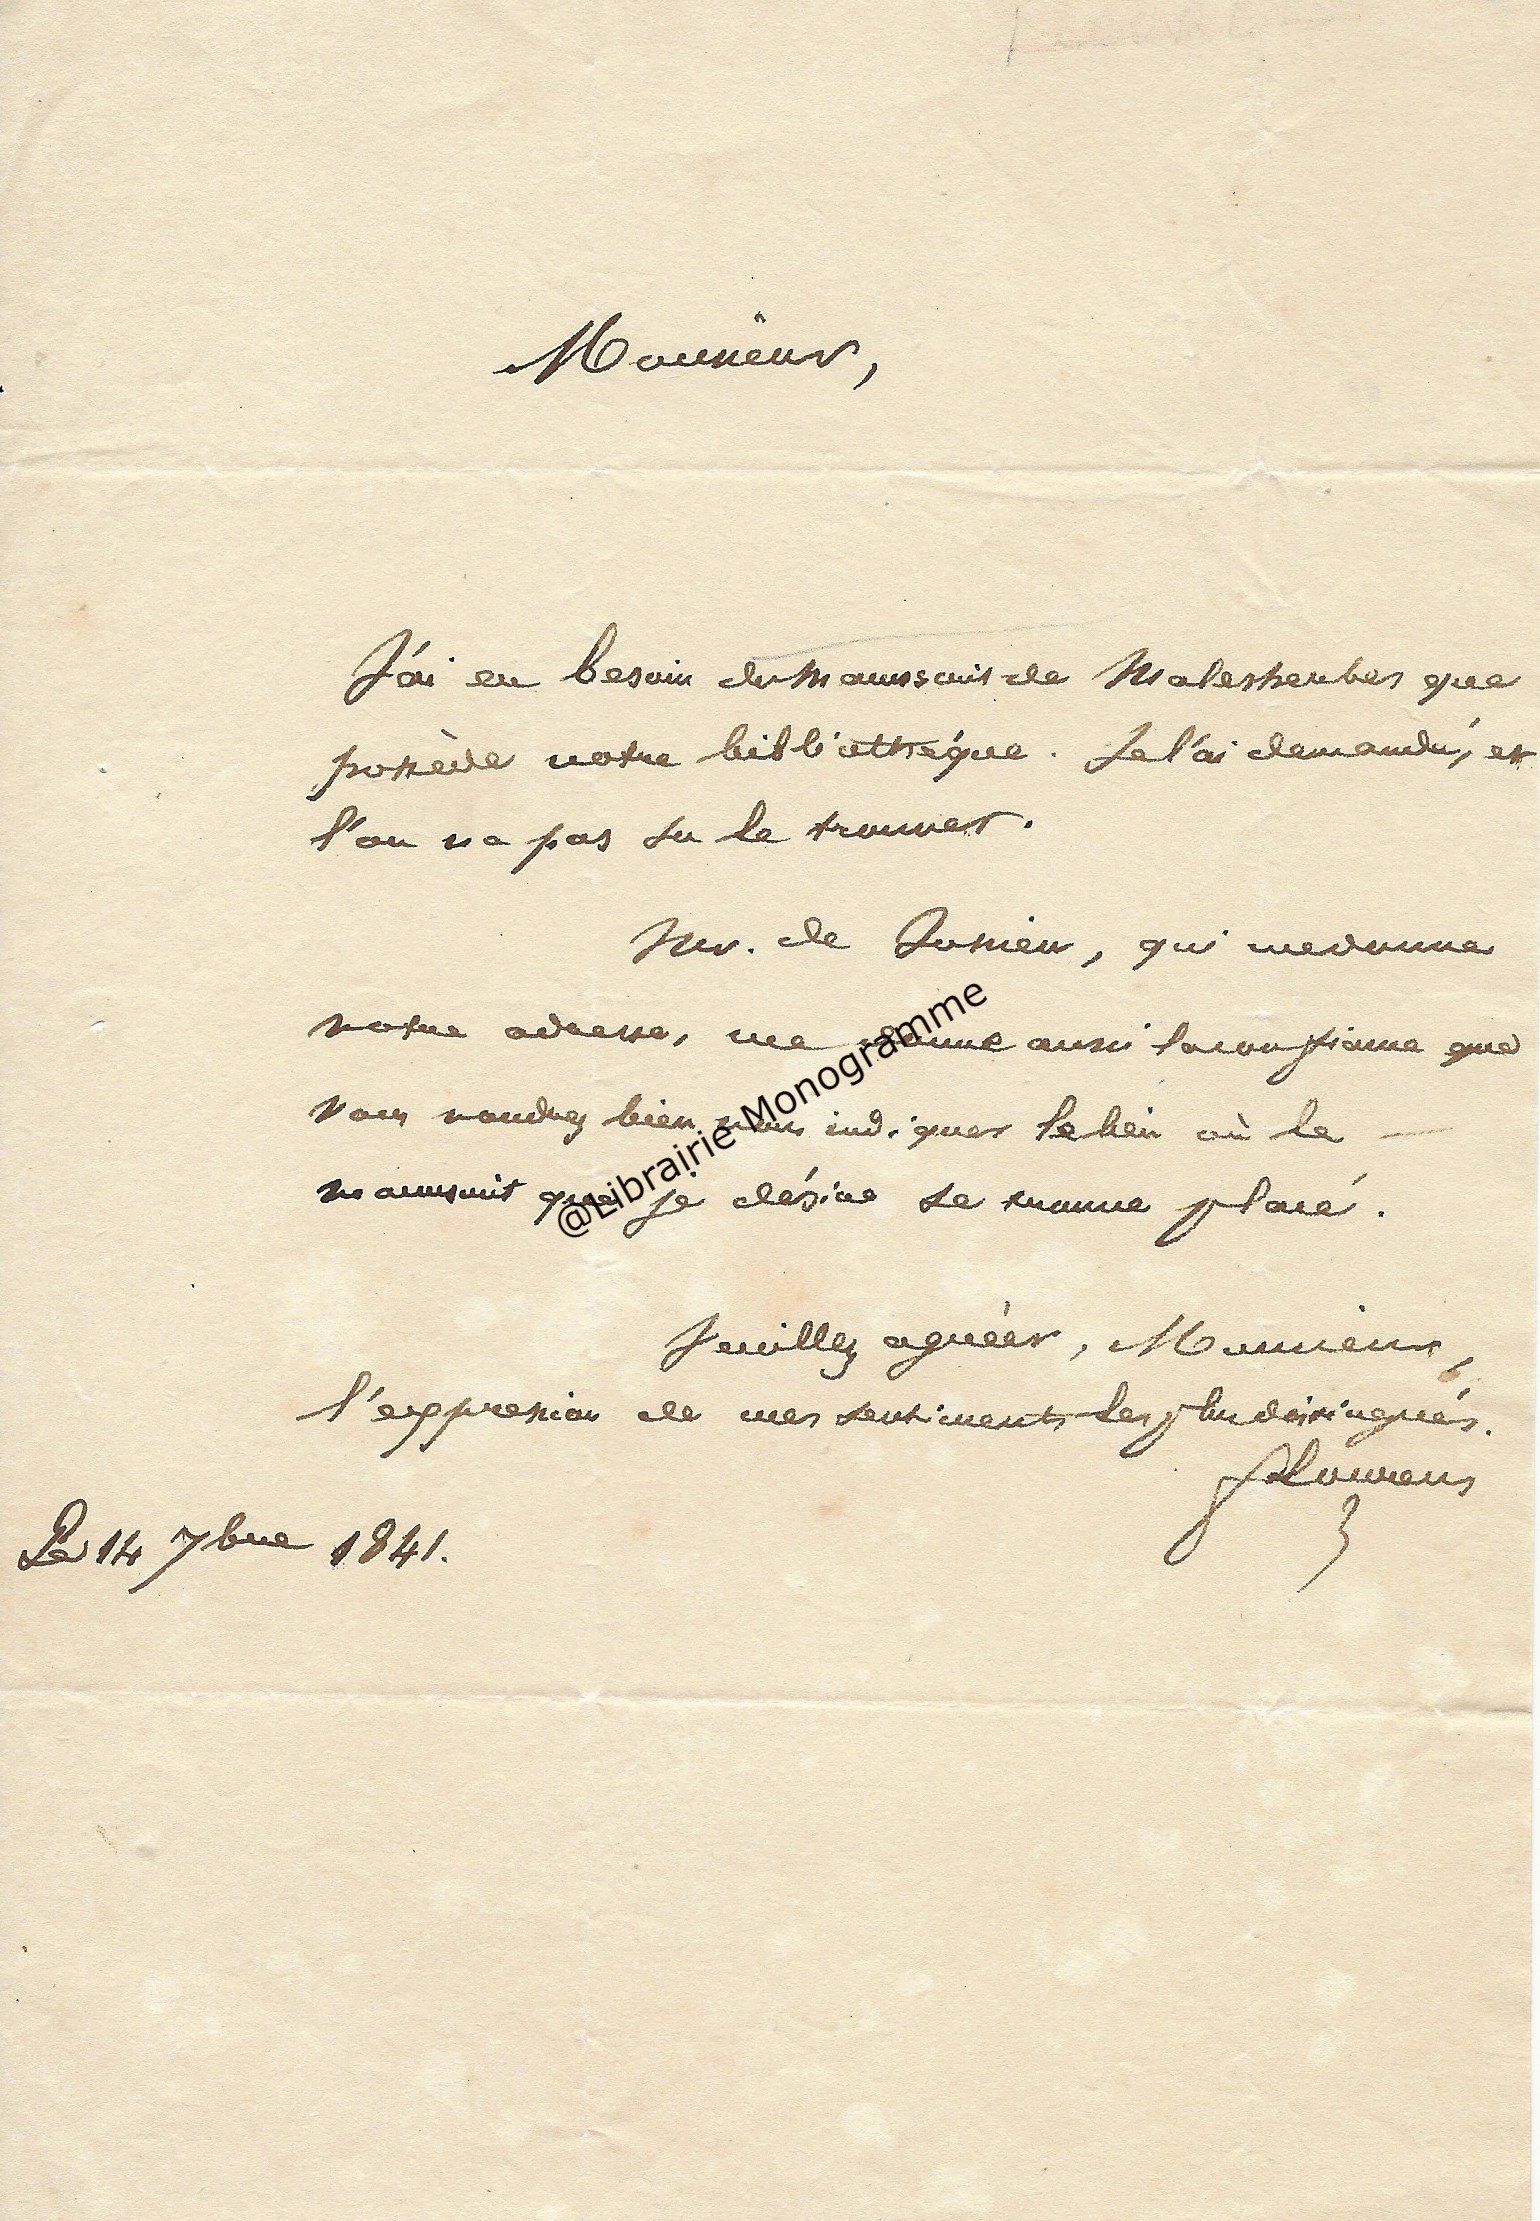 Monsieur,
J'ai eu besoin du manuscrit de Malesherbes que
possède notre bibliothèque. Je l'ai demandé, et
l'on n'a pas su le trouver.
Mr. de Jussieu, qui me donne
votre adresse, me donne aussi la confiance que
vous voudrez bien nous indiquer le lieu où le
manuscrit que je désire se trouve placé.
Veuillez agréer, Monsieur,
l'expression de mes sentiments les plus distingués.
Flourens
Le 14 7bre 1841.
@Librairie Monogramme